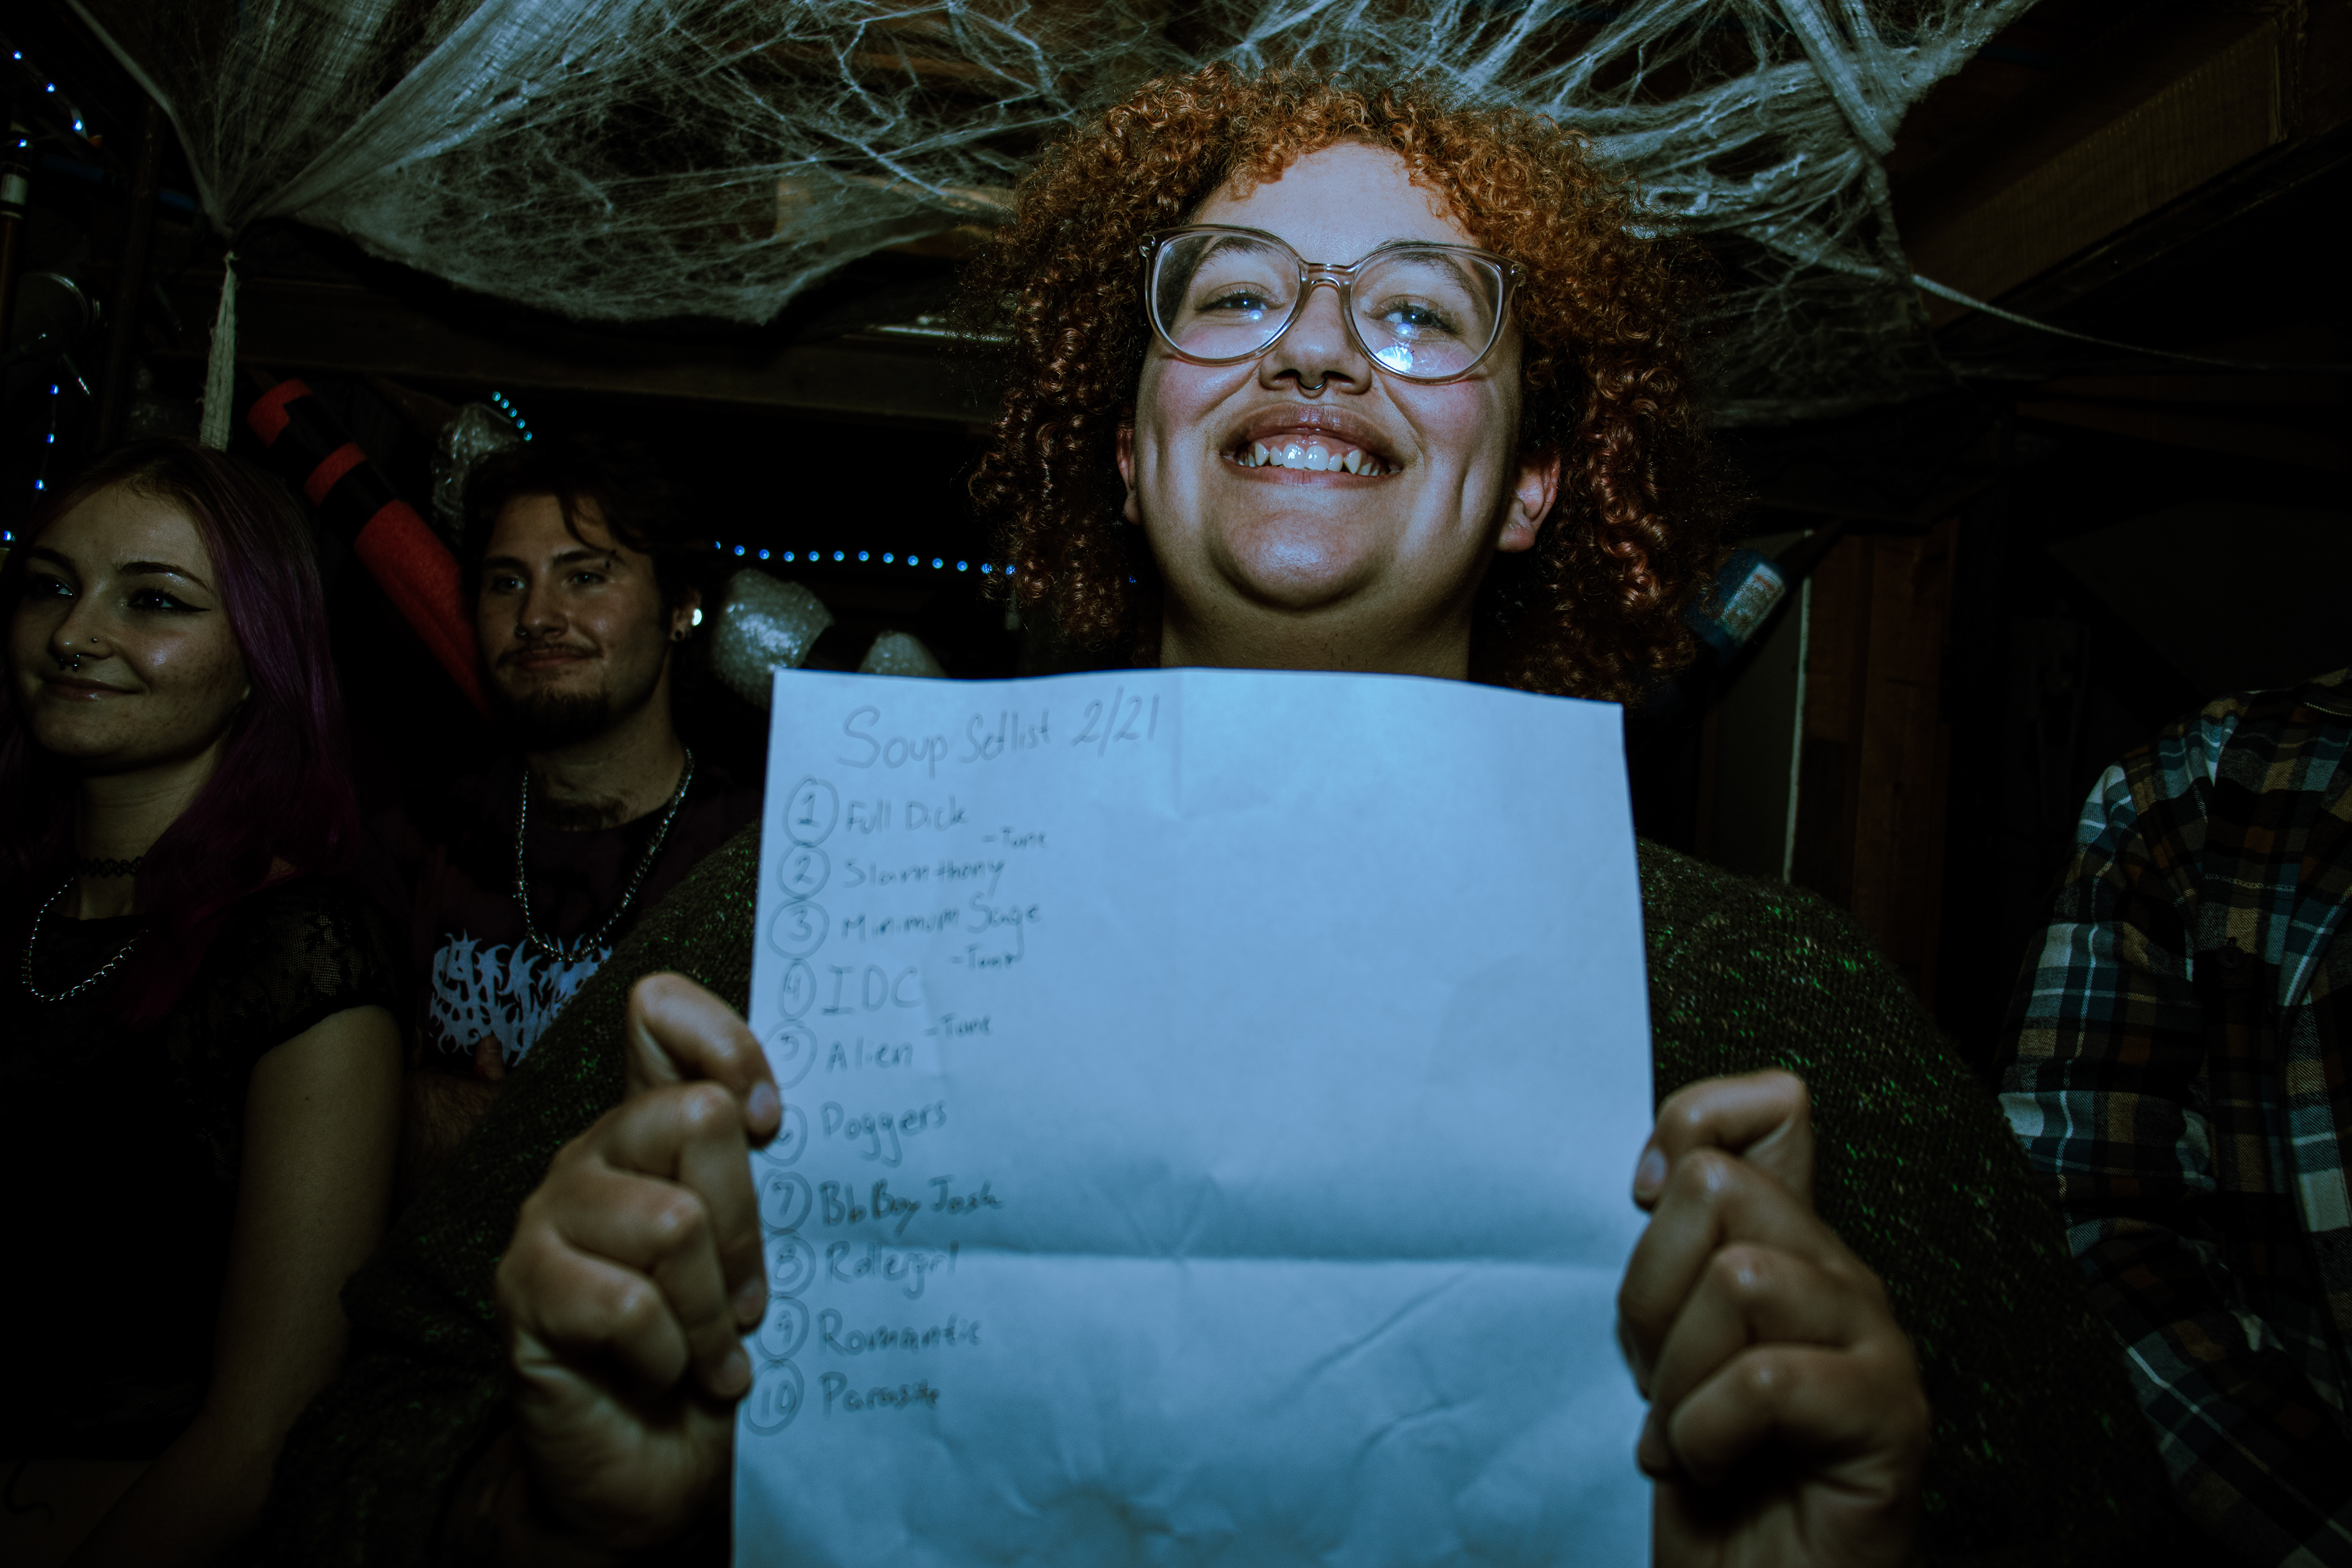 Soup Setlist 2/21
1 Full Dick
- Tune
2 Slamthony
3 Minimum Sage
- Tune
4 IDC
- Tune
5 Alien
6 Poggers
7 Bb Boy Josh
8 Rollergrl
9 Romantic
10 Parasite